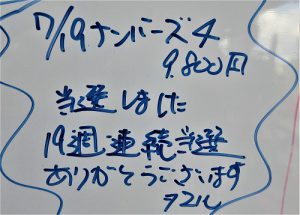 7/19ナンバーズ4
9.800円
当選しました
19週連続当選
ありがとうございます